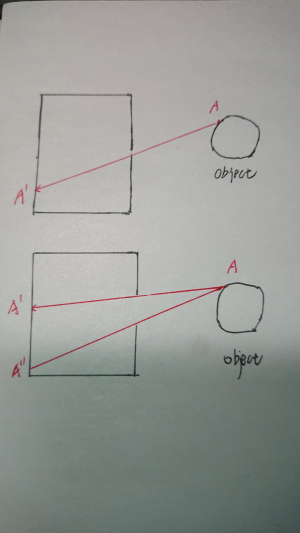 A
A'
object
A
A'
A"
object